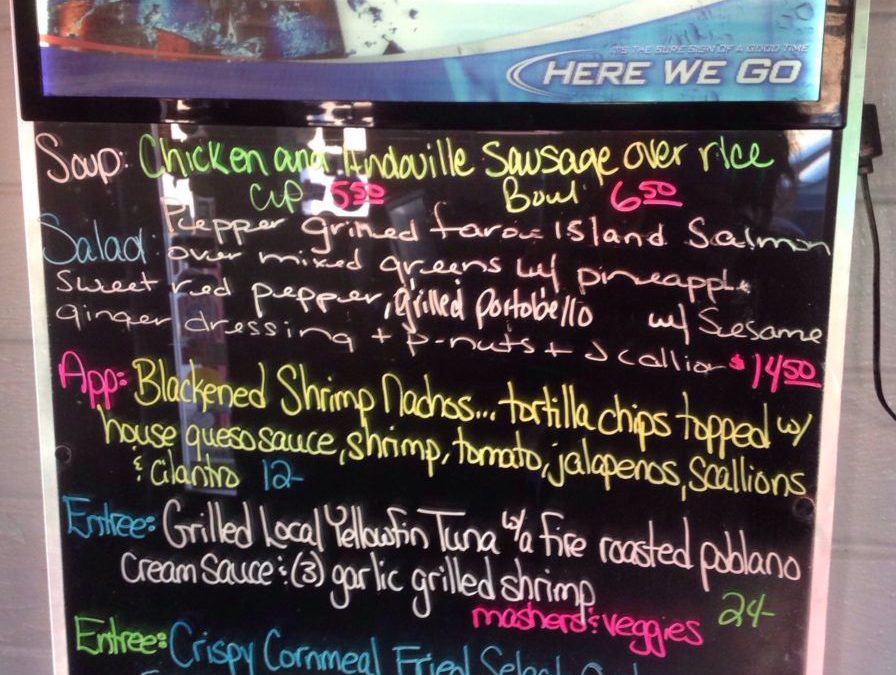 IT'S THE SURE SIGN OF A GOOD TIME
HERE WE GO
Soup: Chicken and Andouille Sausage over rice
CUP 5.50 Bowl 6.50
Salad: Pepper grilled faroe Island Salmon
over mixed greens w/ pineapple
sweet red pepper, grilled portobello w/ Sesame
ginger dressing + p-nuts + Scallion $14.50
App: Blackened Shrimp Nachos... tortilla chips topped w/
house queso sauce, shrimp, tomato, jalapenos, Scallions
& Cilantro 12-
Entree: Grilled Local Yellowfin Tuna w/a fire roasted poblano
Cream Sauce & (3) garlic grilled shrimp
mashers & veggies 24-
Entree: Crispy Cornmeal Fried Select